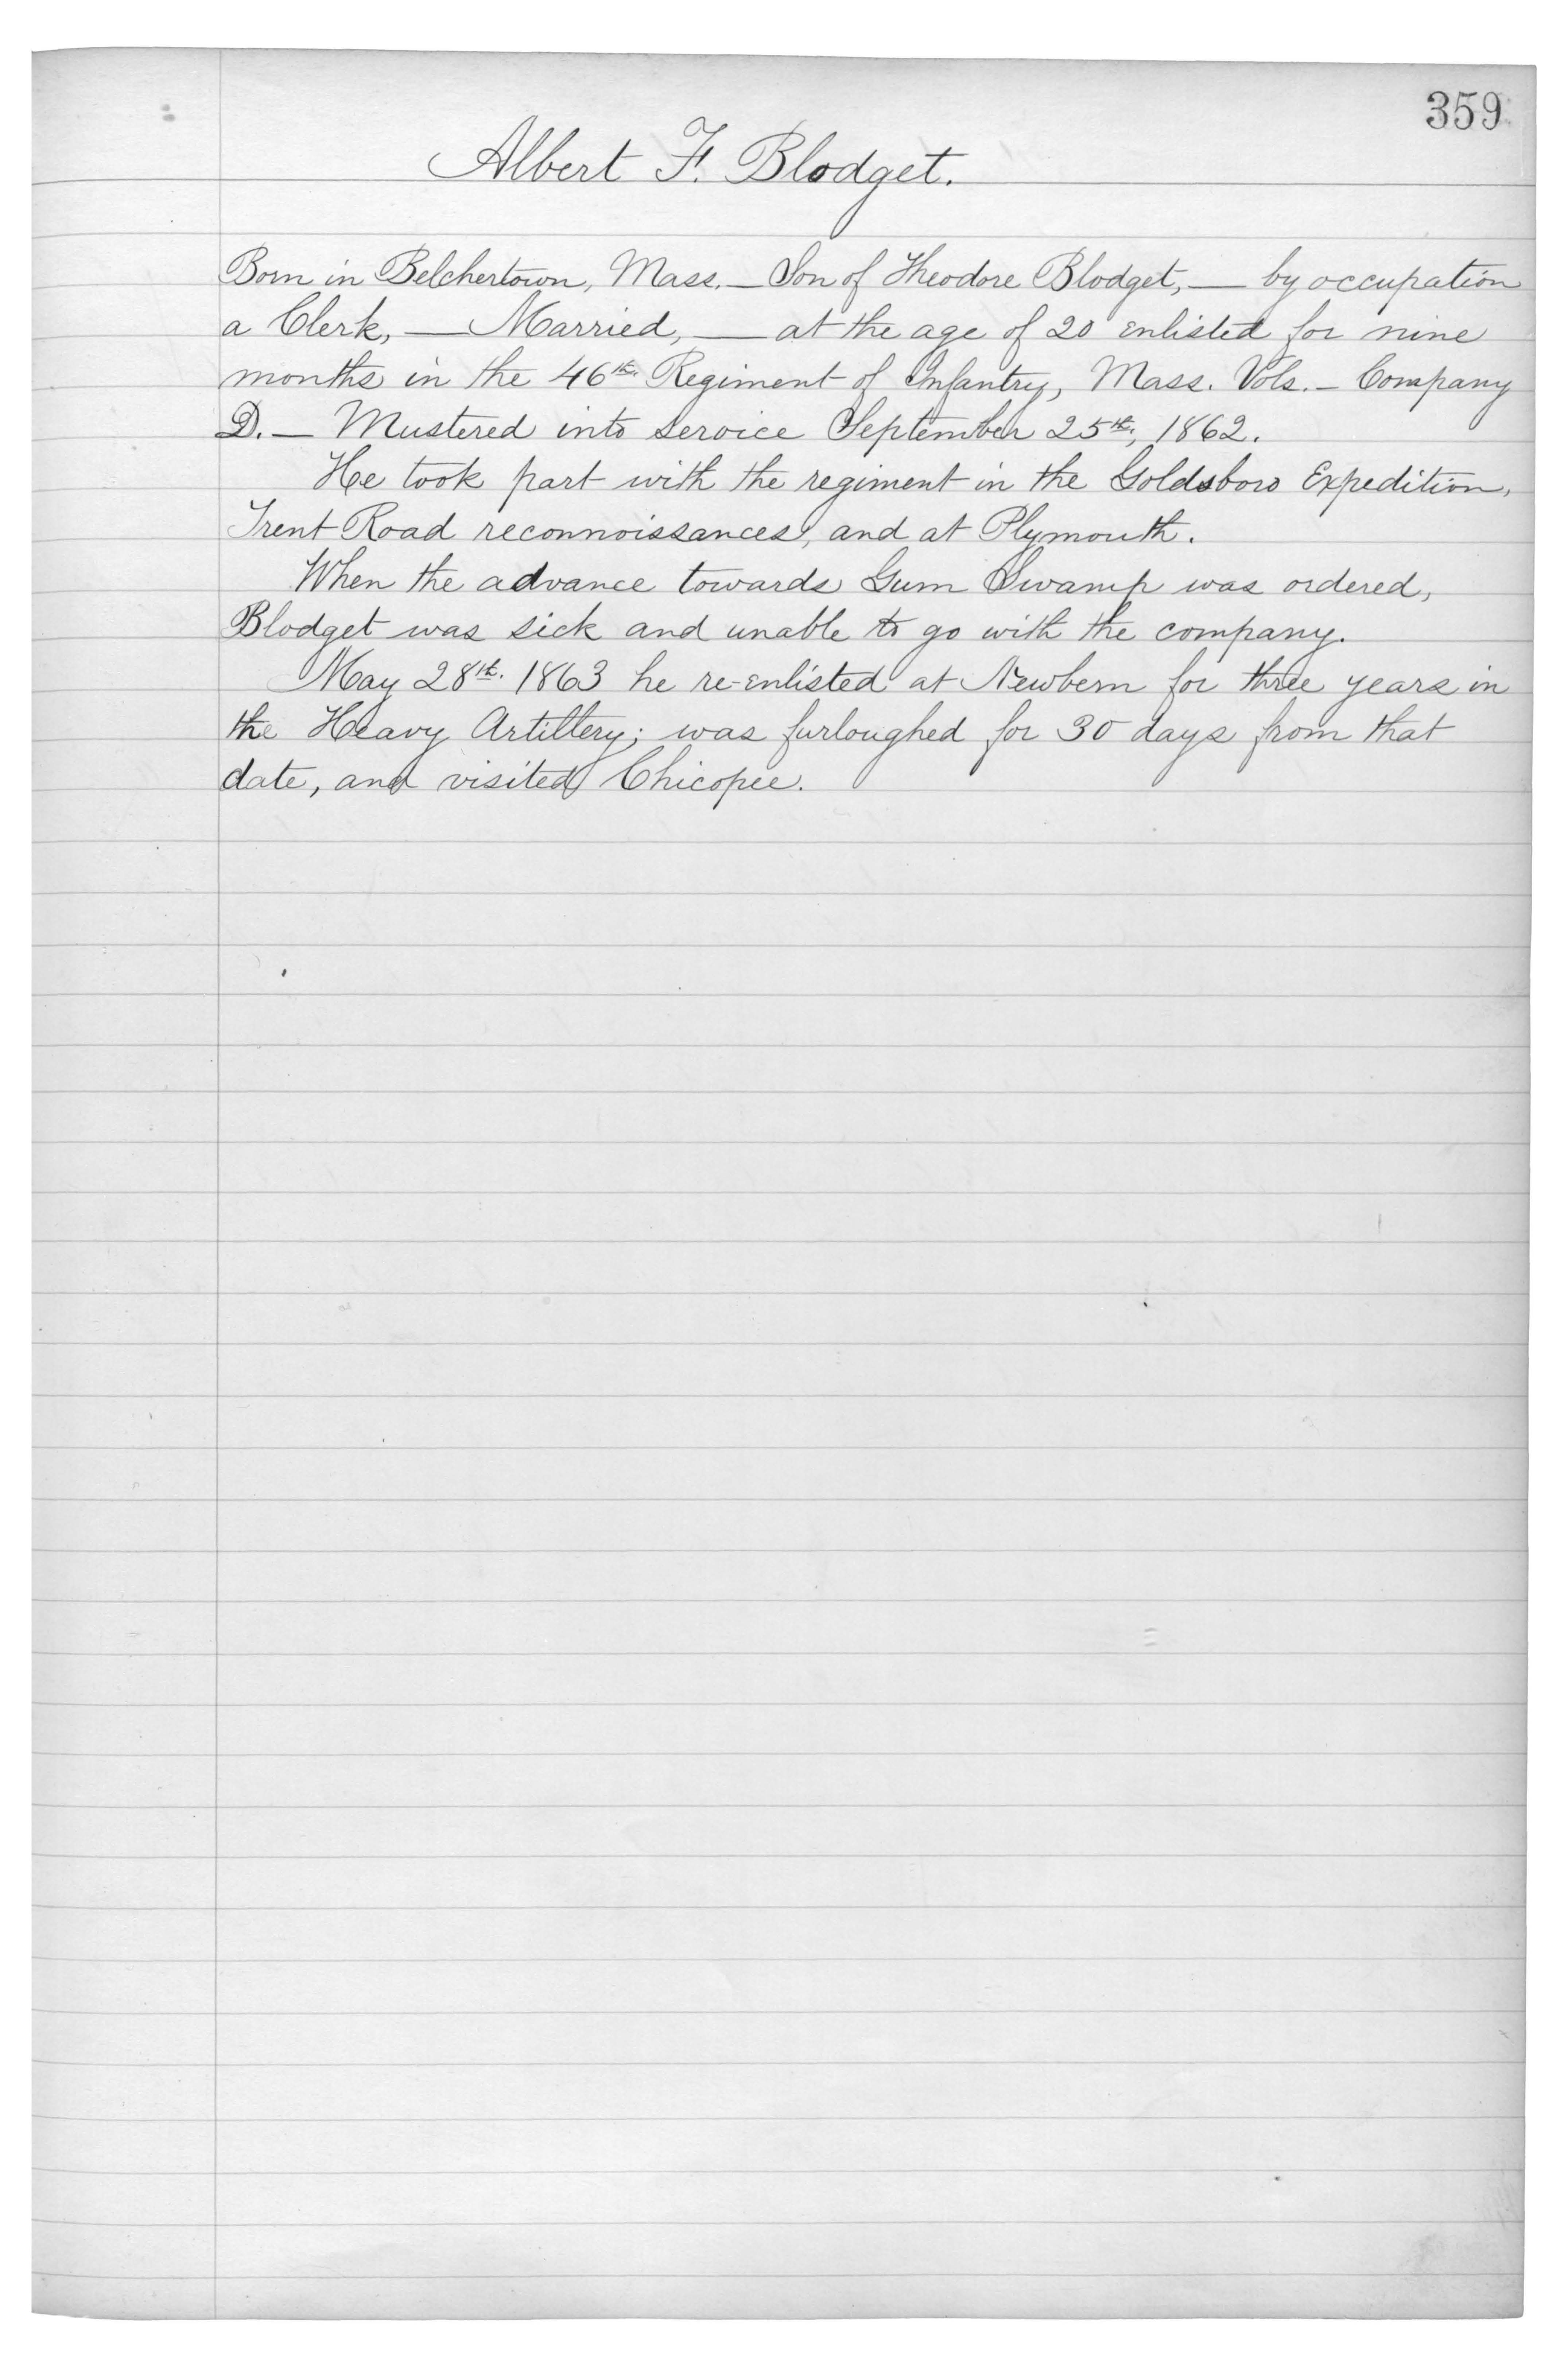 359
Albert F. Blodget.
Born in Belchertown, Mass. — Son of Theodore Blodget, — by occupation
a Clerk, — Married, — at the age of 20 enlisted for nine
months in the 46th. Regiment of Infantry, Mass. Vols. — Company
D. — Mustered into service September 25th, 1862.
He took part with the regiment in the Goldsboro Expedition,
Trent Road reconnoissances, and at Plymouth.
When the advance towards Gum Swamp was ordered,
Blodget was sick and unable to go with the company.
May 28th. 1863 he re-enlisted at Newbern for three years in
the Heavy Artillery; was furloughed for 30 days from that
date, and visited Chicopee.